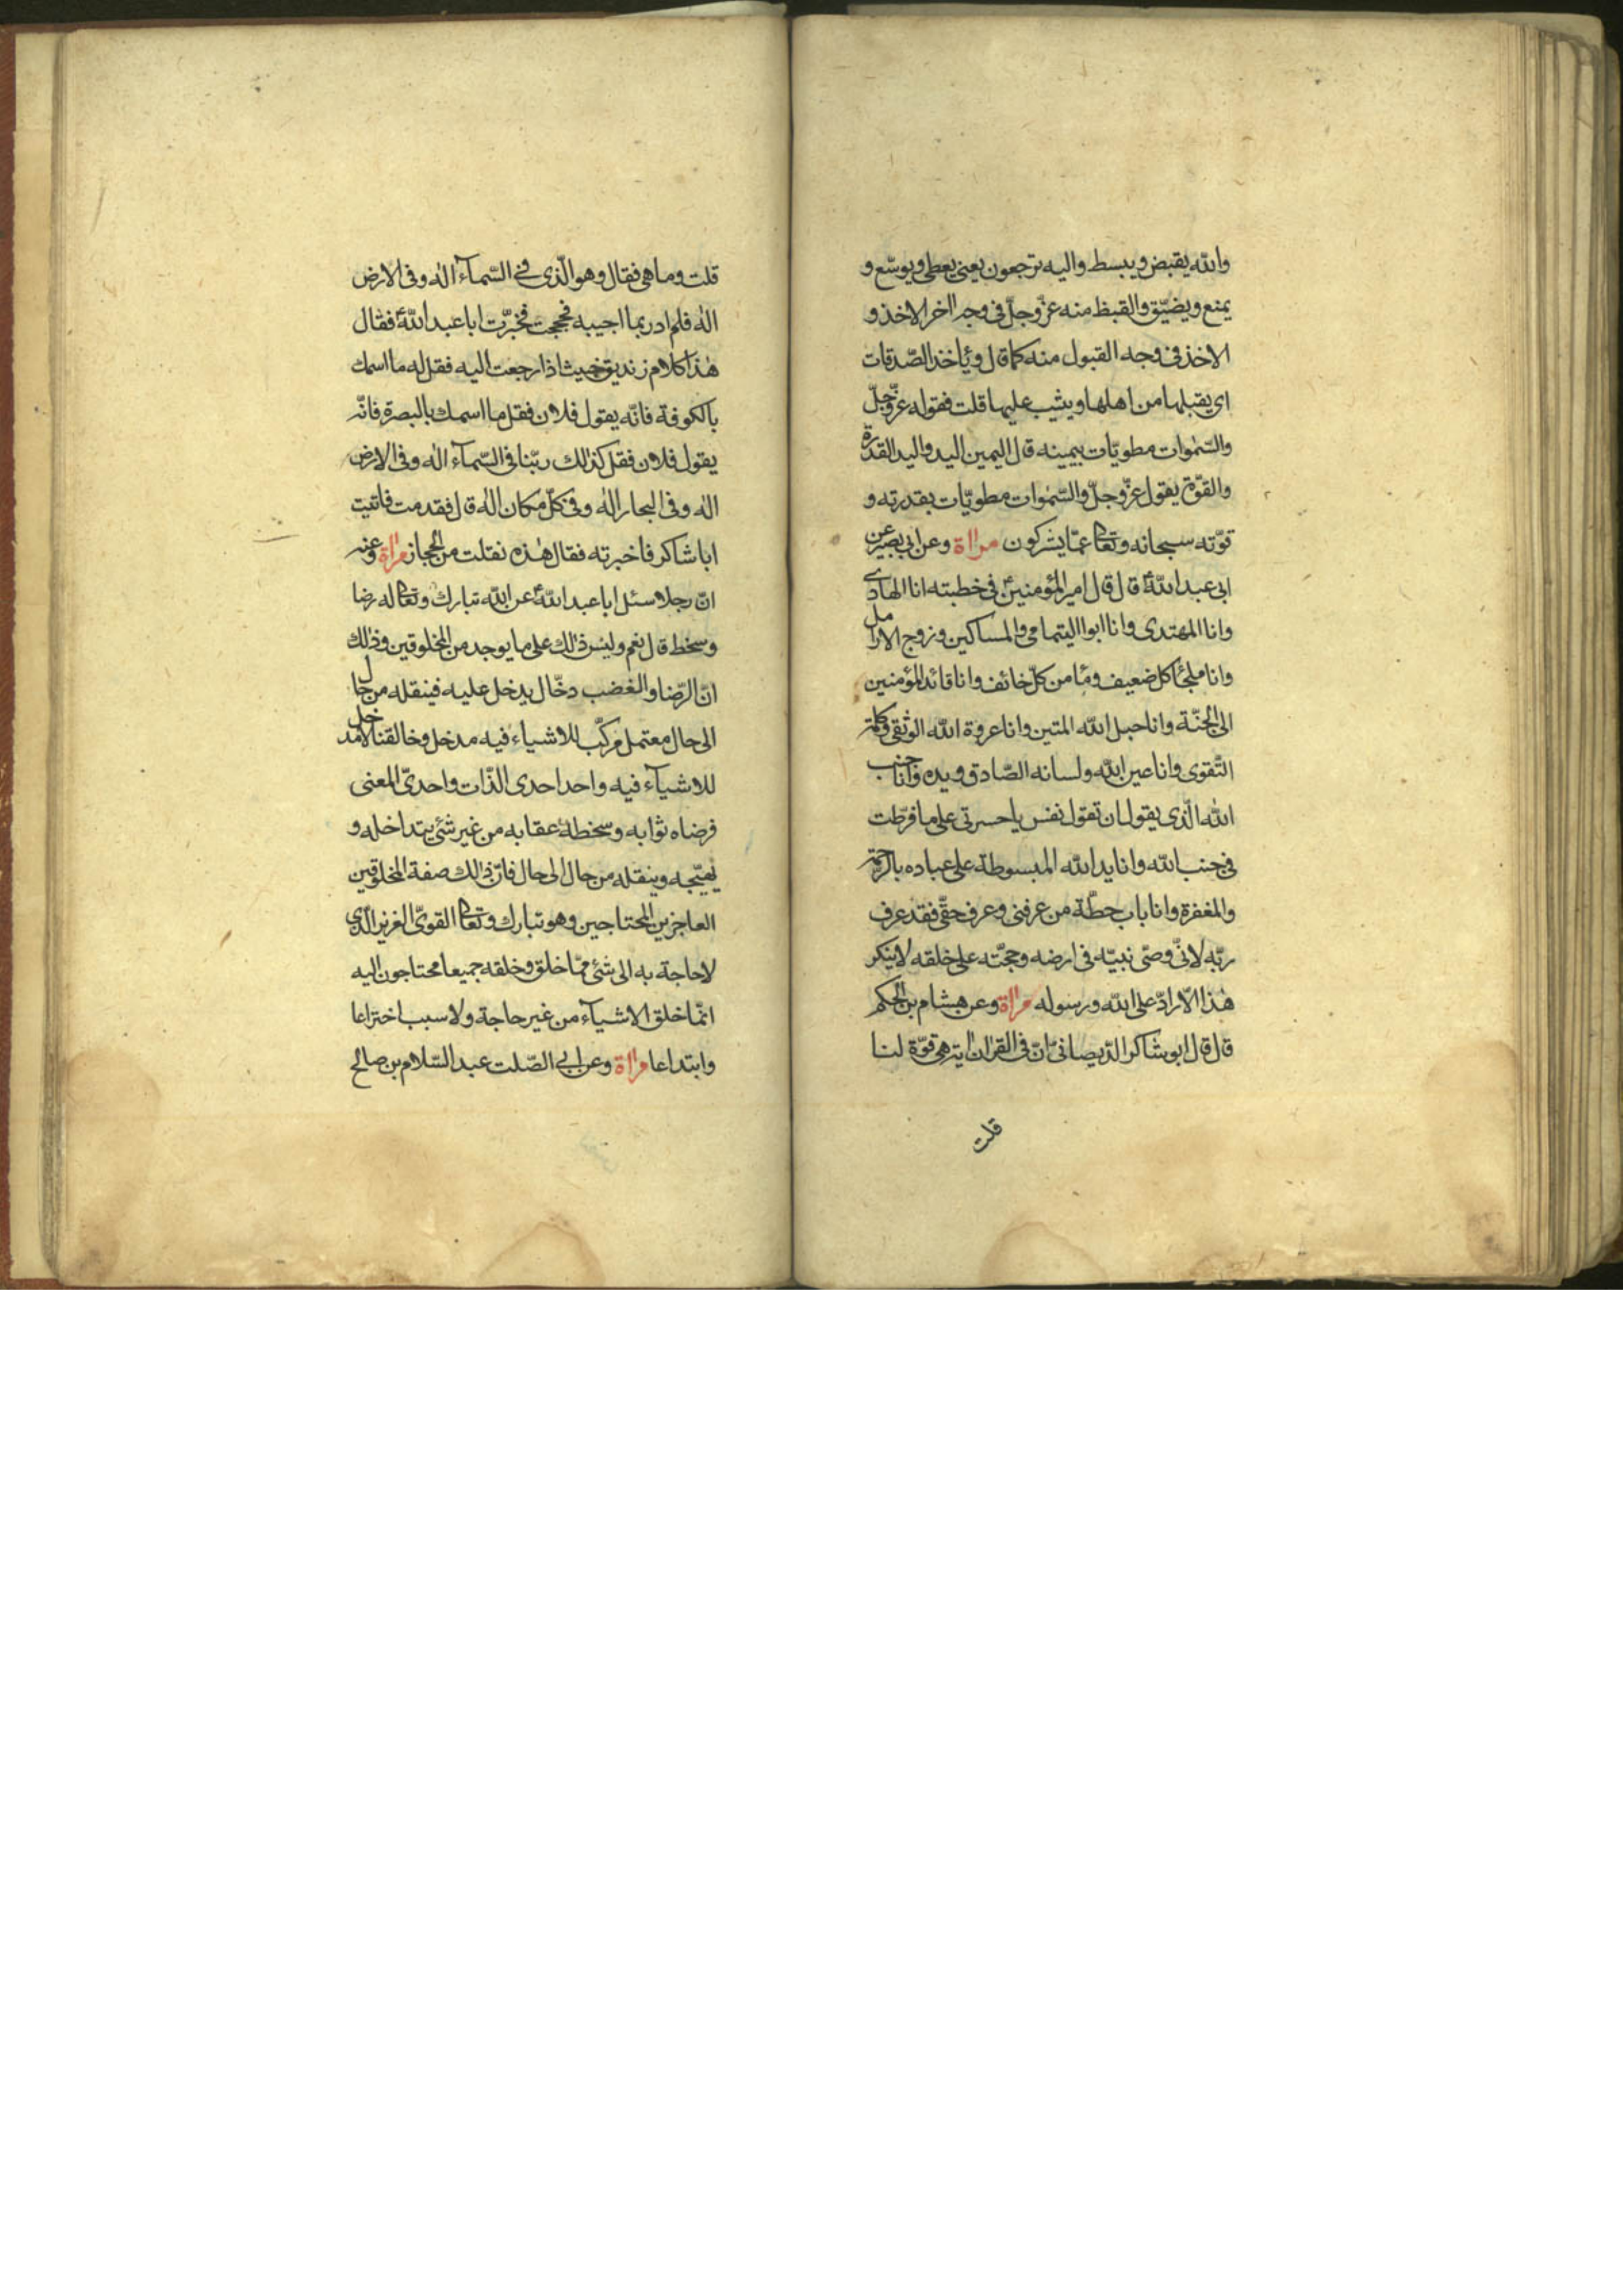 والله يقبض ويبسط واليه ترجعون يعنى يعطى ويوسّع و
يمنع ويضيّق والقبظ منه عزّ وجلّ فى وجه اخر الاخذ و
الاخذ فى وجه القبول منه كما قال ويأخذ الصّدقات
اى يقبلها من اهلها ويثيب عليها قلت فقوله عزّ وجلّ
والسّمٰوات مطويّات بيمينه قال اليمين اليد واليد القدرة
والقوّة يقول عزّ وجلّ والسّمٰوات مطويّات بقدرته و
قوّته سبحانه وتعالى عمّا يشركون مراة وعن ابى بصير عن
ابى عبد اللهؑ قال قال امير المؤمنينؑ فى خطبته انا الهادى
وانا المهتدى وانا ابوا اليتمامى والمساكين وزوج الارامل
وانا ملجأ كل ضعيف ومأمن كلّ خائف وانا قائد المؤمنين
الى الجنّة وانا حبل الله المتين وانا عروة الله الوثقى وكلمة
التّقوى وانا عين الله ولسانه الصّادق ويده وانا جنب
الله الّذى يقول ان تقول نفس يا حسرتى على ما فرّطت
فى جنب الله وانا يد الله المبسوطة على عباده بالرحمة
والمغفرة وانا باب حطّة من عرفنى وعرف حقّى فقد عرف
ربّه لانّى وصىّ نبيّه فى ارضه وحجّته على خلقه لا ينكر
هٰذا الّا رادّ على الله ورسوله مراة وعن هشام بن الحكم
قال قال ابو شاكر الدّيصانى انّ فى القران اية هى قوّة لنا
قلت
قلت وما هى فقال وهو الّذى فى السّمآء الٰه وفى الارض
الٰه فلم ادر بما اجيبه فحججت فخبّرت ابا عبد اللهؑ فقال
هٰذا كلام زنديق خبيث اذا رجعت اليه فقل له ما اسمك
بالكوفة فانّه يقول فلان فقل ما اسمك بالبصرة فانّه
يقول فلان فقل كذلك ربّنا فى السّمآء الٰه وفى الارض
الٰه وفى البحار الٰه وفى كلّ مكان الٰه قال فقدمت فاتيت
ابا شاكر فاخبرته فقال هٰذه نقلت من الحجاز مراة وعنه
انّ رجلا سئل ابا عبد اللهؑ عن الله تبارك وتعالى له رضا
وسخط قال نعم وليس ذٰلك على ما يوجد من المخلوقين وذٰلك
انّ الرّضا والغضب دخّال يدخل عليه فينقله من حال
الى حال معتمل مركّب للاشياء فيه مدخل وخالقنا لا مدخل
للاشيآء فيه واحد احدى الذّات واحدىّ المعنى
فرضاه ثوابه وسخطه عقابه من غير شئ يتداخله و
يهيّجه وينقله من حال الى حال فانّ ذٰلك صفة المخلوقين
العاجزين المحتاجين وهو تبارك وتعالى القوىّ العزيز الّذى
لا حاجة به الى شئ ممّا خلق وخلقه جميعا محتاجون اليه
انّما خلق الاشيآء من غير حاجة ولا سبب اختراعا
وابتداعا مراة وعن ابى الصّلت عبد السّلام بن صالح